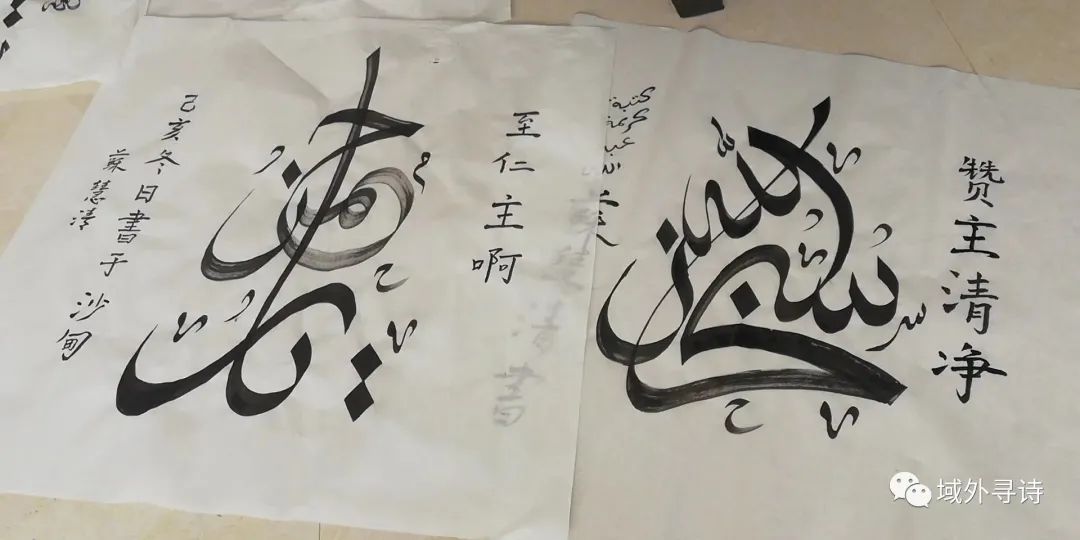 至仁主啊
يا رحمن
己亥冬日書于沙甸
蘇慧清
赞主清净
سبحان الله
域外寻诗